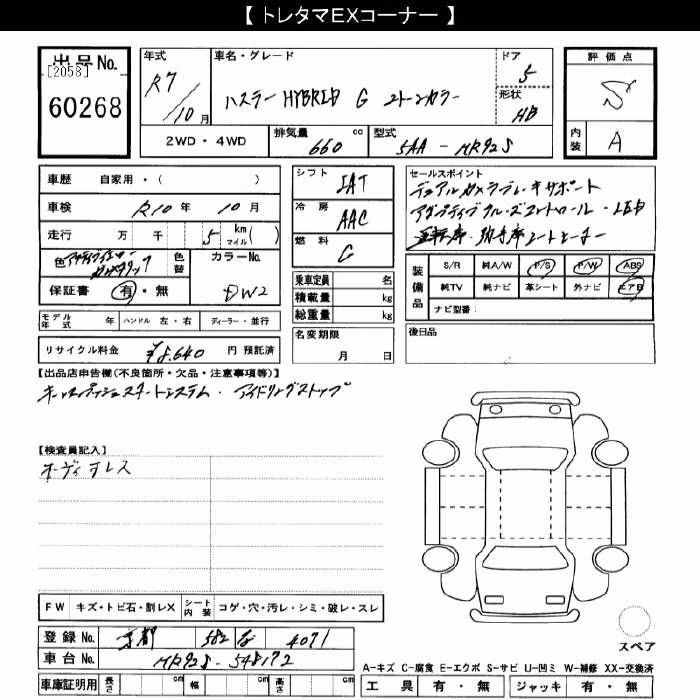 【 トレタマEXコーナー 】
出品No.
[2058]
60268
年式
R7
10月
車名・グレード
ハスラー HYBRID G 2トーンカラー
ドア
5
形状
HB
評価点
S
内装
A
2WD・4WD
排気量
660
cc
型式
5AA - MR92S
車歴 自家用・( )
車検 R10年 10月
走行 万 千 5 km マイル( )
色
色替
カラーNo.
DW2
保証書 有・無
モデル年式 年 ハンドル 左・右 ディーラー・並行
リサイクル料金 ¥8,640 円 預託済
シフト
IAT
冷房
AAC
燃料
G
乗車定員 名
積載量 kg
総重量 kg
名変期限
月 日
セールスポイント
デュアルカメラブレーキサポート
アダプティブクルーズコントロール・LED
運転席・助手席シートヒーター
装備品
S/R 純A/W P/S P/W ABS
純TV 純ナビ 革シート 外ナビ エアB
ナビ型番:
後日品
【出品店申告欄(不良箇所・欠品・注意事項等)】
キーレスプッシュスタートシステム・アイドリングストップ
【検査員記入】
オーディオレス
FW キズ・トビ石・割レX シート内装 コゲ・穴・汚レ・シミ・破レ・スレ
登録No. 京都 582 4071
車台No. MR92S-548172
車庫証明用 長さ cm 幅 cm 高さ cm
スペア
A−キズ C−腐食 E−エクボ S−サビ U−凹ミ W−補修 XX−交換済
工具 有・無 ジャッキ 有・無